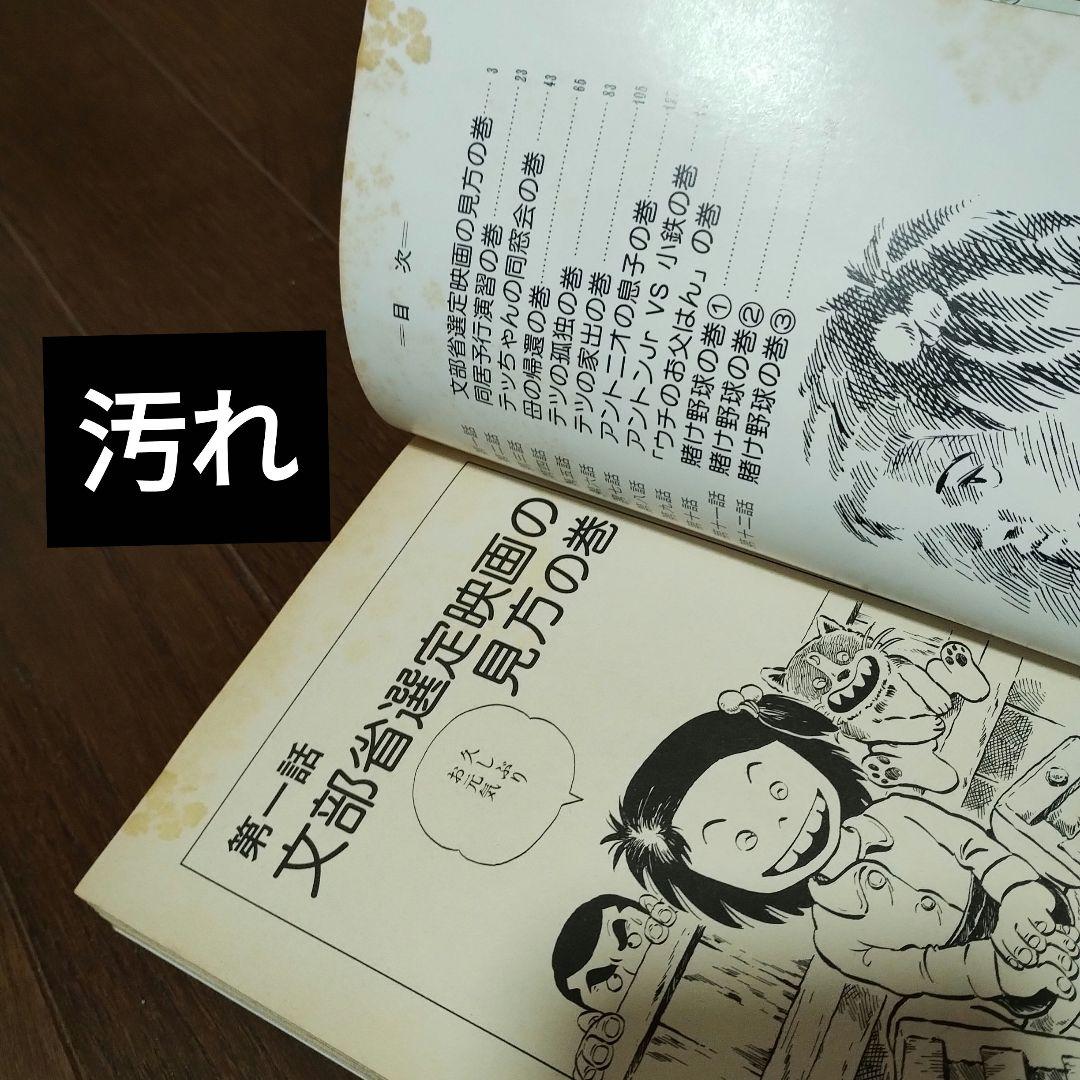 汚れ
目次
第一話 文部省選定映画の見方の巻 3
第二話 同居予行演習の巻 23
第三話 テッちゃんの同窓会の巻 43
第四話 田の帰還の巻 65
第五話 テツの孤独の巻 83
第六話 テツの家出の巻 105
第七話 アントニオの息子の巻
第八話 アントンJr VS 小鉄の巻
第九話 「ウチのお父はん」の巻
第十話 賭け野球の巻①
第十一話 賭け野球の巻②
第十二話 賭け野球の巻③
第一話
文部省選定映画の
見方の巻
久しぶり
お元気